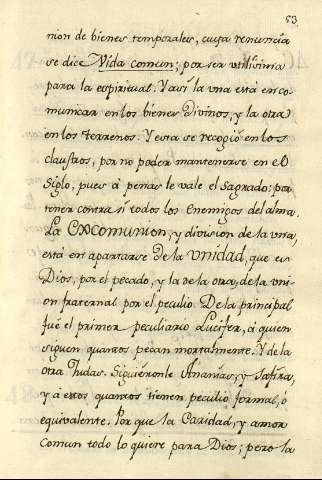 53
nion de bienes temporales, cuya renuncia
se dice Vida comun; por ser utilisima
para la espiritual. Y asi la vna está en co-
municar en los bienes Divinos, y la otra
en los terrenos. Y esta se recogió en los
claustros, por no poder mantenerse en el
Siglo, pues à penas le vale el Sagrado: por
tener contra sí todos los Enemigos del alma.
La Excomunion, y division de la vna,
está en apartarse de la Vnidad, que es
Dios, por el pecado, y la de la otra, de la vni-
on fraternal por el peculio. De la principal
fue el primer peculiario Lucifer, à quien
siguen quantos pecan mortalmente. Y de la
otra Judas. Siguieronle Ananias, y Safira,
y à estos quantos tienen peculio formal, ó
equivalente. Por que la Caridad, y amor
comun todo lo quiere para Dios; pero la